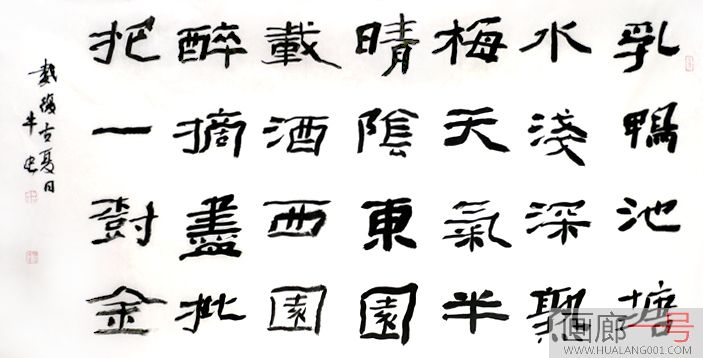 乳鴨池塘
水淺深熟
梅天氣半
晴陰東園
載酒西園
醉摘盡枇
杷一樹金
戴復古夏日
牛
画廊一号
WWW.HUALANG001.COM